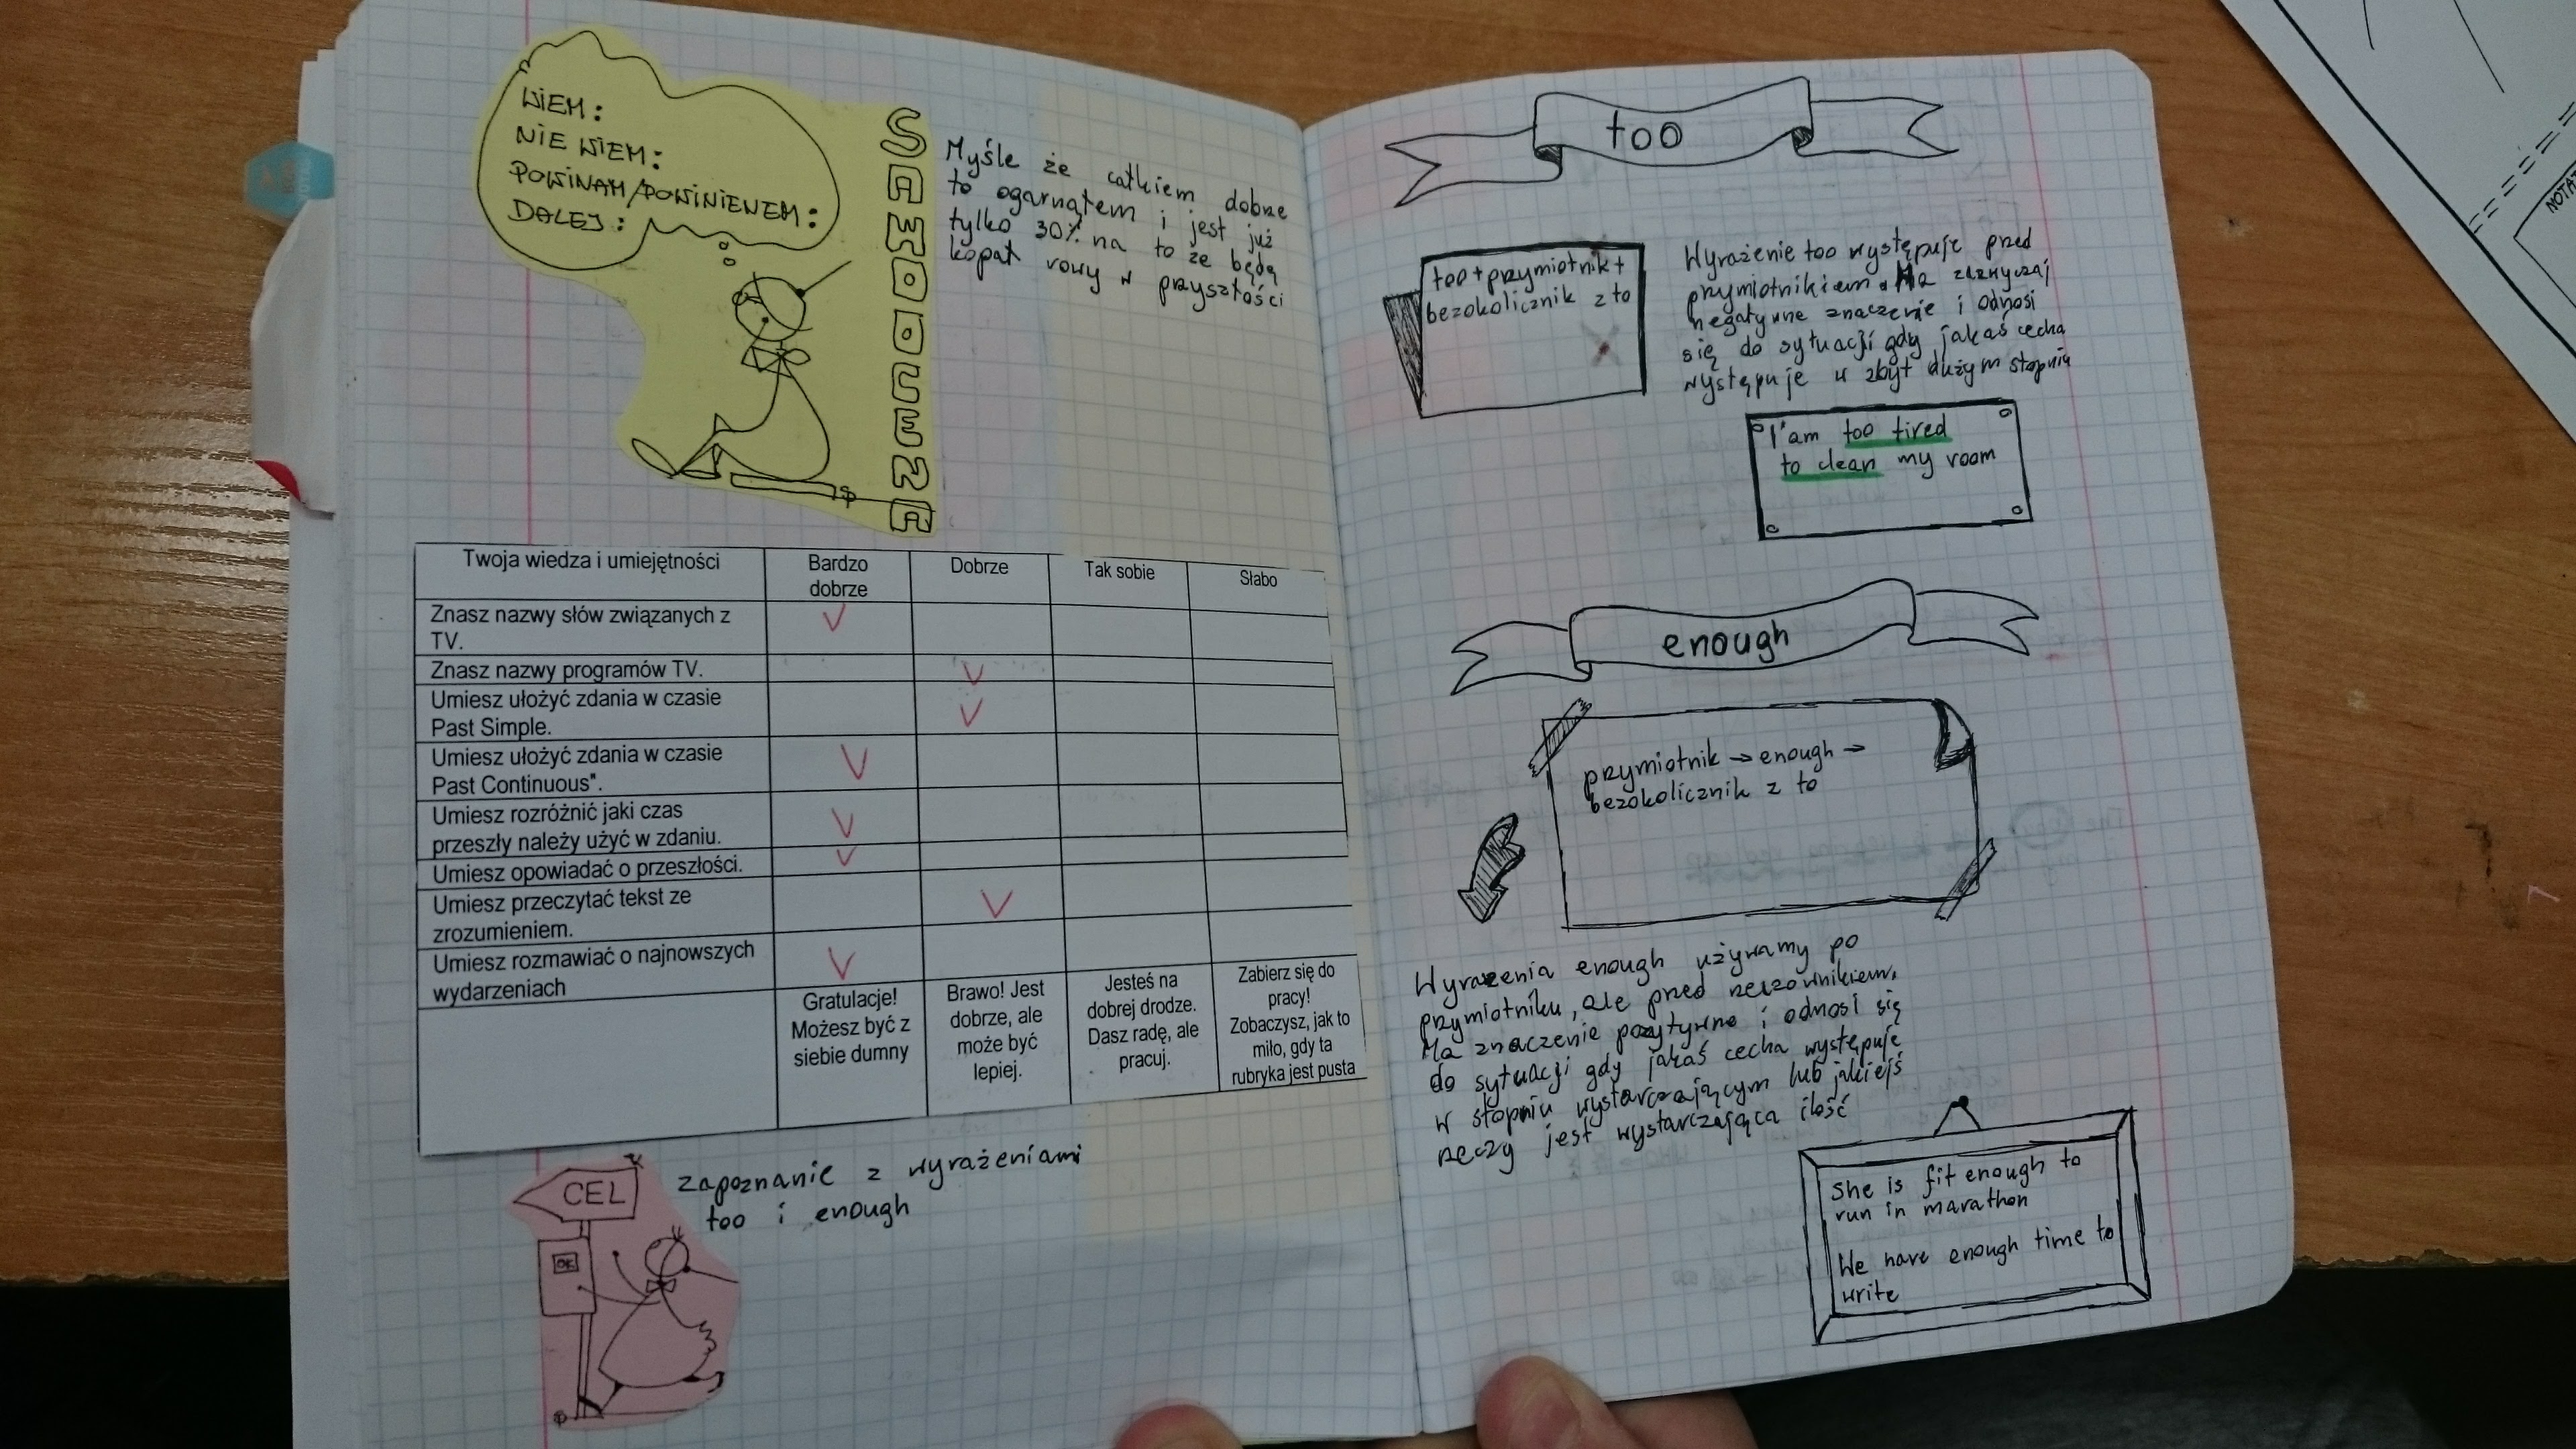 WIEM:
NIE WIEM:
POWINAM/POWINIENEM:
DALEJ:
SAMOOCENA
Myśle że całkiem dobrze
to ogarnąłem i jest już
tylko 30% na to że będę
kopał rowy w przyszłości
Twoja wiedza i umiejętności
Bardzo
dobrze
Dobrze
Tak sobie
Słabo
Znasz nazwy słów związanych z
TV.
Znasz nazwy programów TV.
Umiesz ułożyć zdania w czasie
Past Simple.
Umiesz ułożyć zdania w czasie
Past Continuous".
Umiesz rozróżnić jaki czas
przeszły należy użyć w zdaniu.
Umiesz opowiadać o przeszłości.
Umiesz przeczytać tekst ze
zrozumieniem.
Umiesz rozmawiać o najnowszych
wydarzeniach
Gratulacje!
Możesz być z
siebie dumny
Brawo! Jest
dobrze, ale
może być
lepiej.
Jesteś na
dobrej drodze.
Dasz radę, ale
pracuj.
Zabierz się do
pracy!
Zobaczysz, jak to
miło, gdy ta
rubryka jest pusta
CEL
OK
zapoznanie z wyrażeniami
too i enough
too
too+przymiotnik+
bezokolicznik z to
Wyrażenie too występuje przed
przymiotnikiem. Ma zazwyczaj
negatywne znaczenie i odnosi
się do sytuacji gdy jakaś cecha
występuje w zbyt dużym stopniu
I'am too tired
to clean my room
enough
przymiotnik → enough →
bezokolicznik z to
Wyrażenia enough używamy po
przymiotniku, ale przed rzeczownikiem.
Ma znaczenie pozytywne i odnosi się
do sytuacji gdy jakaś cecha występuje
w stopniu wystarczającym lub jakiejś
rzeczy jest wystarczająca ilość
She is fit enough to
run in marathon
We have enough time to
write